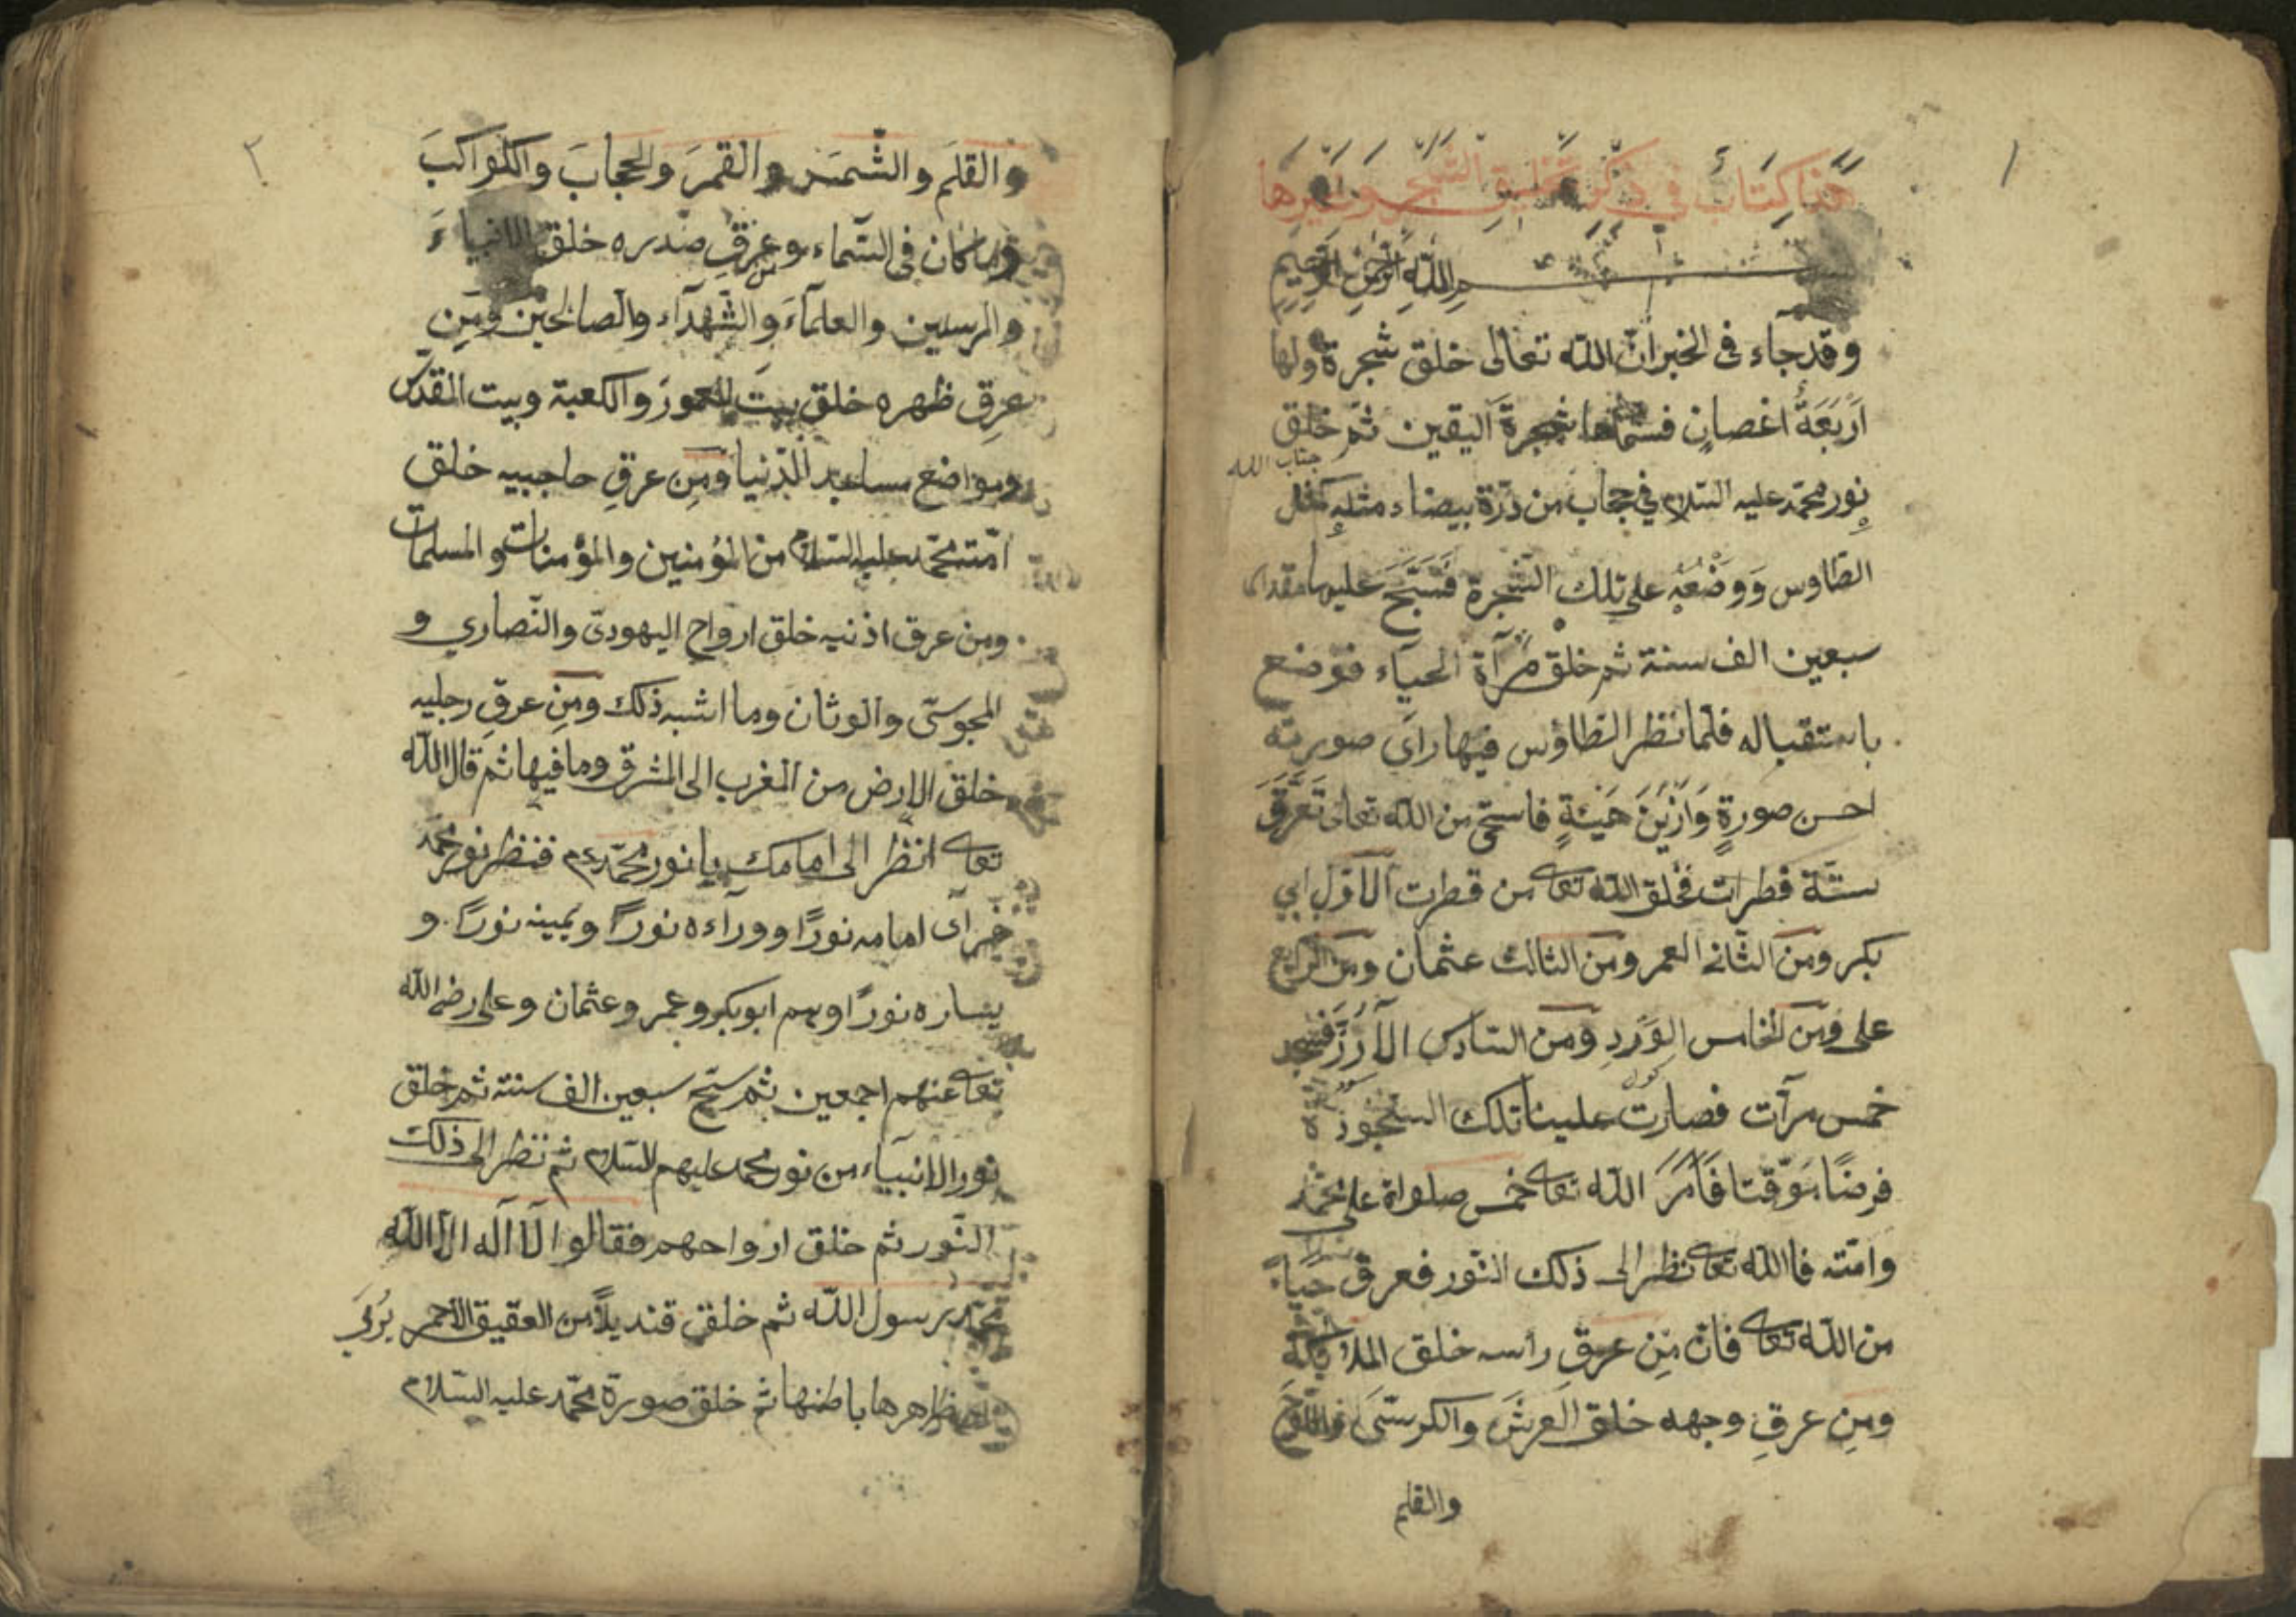 ١
هذا كتاب في ذكر تخليق الشجر وغيرها
بسم الله الرحمن الرحيم
وقد جاء فى الخبر ان الله تعالى خلق شجرة ولها
اَرْبَعَةُ اغصانٍ فسمّاها شجرة اليقين ثم خلق
جناب الله
نور محمّد عليه السّلام في حجاب من درّة بيضاء مثله كمثل
الطّاوس وَوضْعُه على تلك الشجرة فَسَبَّحَ عليها مقدار
سبعين الف سنة ثم خلق مرآة الحياء فوضع
باستقباله فلمّا نظر الطاؤس فيها راَى صورته
احسن صورةٍ وَازْيَنَ هَيْئَةٍ فاستحى من الله تعالى تَعَرَّقَ
ستّة قطرات فخلق الله تعا من قطرت الاوّل ابي
بكر ومن الثّانى العمر ومن الثالث عثمان ومن الرابع
على ومن الخامس الوَرَدِ ومن السّادس الآرُزّ فسجد
خمس مرآت فصارت علينا تلك السجود
فرضًا مَوَقّتا فَاَمَرَ الله تعا خمس صلواة على محمّد
وامّته فاالله تعا نظر الى ذلك النّور فعرق حياءً
من الله تعا فان مِن عرقِ راسه خلق الملائكة
ومن عرقِ وجهه خلق العرشَ والكرسّىَ واللوحَ
والقلم
٢
والقلَم والشّمسَ والقمرَ والحجابَ والكواكبَ
وما كان فى السّماء و من عرقِ صدره خلق الانبياءَ
والمرسلين والعلماَء والشّهدآء والصالحين ومَنِ
عرقِ ظهره خلق بيتَ المعمورَ والكعبة وبيت المقدّس
ومواضع مساجد الدّنيا ومِن عرقِ حاجبيه خلق
امّت محمّد عليه السّلام من المؤمنين والمؤمنات والمسلمات
ومن عرق اذنيه خلق ارواح اليهودىّ والنّصاري و
المجوسّى والوثان وما اشبه ذلك ومِن عرقِ رجليه
خلق الارض من المغرب الى المشرق وما فيها ثم قال الله
تعا انظر الى امامك يا نور محمّد عم فنظر نور محمّد
فرآى امامه نورًا وورآءه نورًا ويمينه نورًا و
يساره نورًا وهم ابو بكر وعمر وعثمان وعلى رضى الله
تعا عنهم اجمعين ثم سبّح سبعين الف سنته ثم خلق
نور الانبياء من نور محمد عليهم السّلام ثم نظر الى ذلك
النّور ثم خلق ارواحهم فقالوا لآ آله الاّ الله
محمّد رسول الله ثم خلق قنديلاً من العقيق الاحمر يُرى
ظاهرها باطنها ثم خلق صورة محمّد عليه السّلام